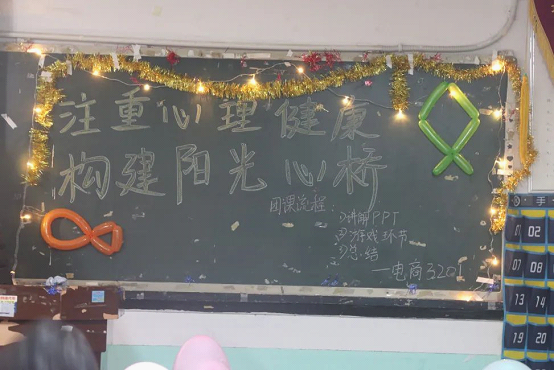 注重心理健康
构建阳光心桥
团课流程:
1)讲解PPT
2)游戏环节
3)总结
—电商3201
手
02
07 08
13 14
19 20